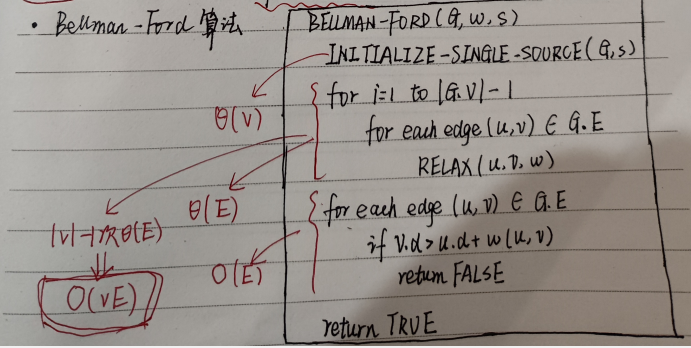 • Bellman-Ford 算法
BELLMAN-FORD(G,w,s)
INITIALIZE-SINGLE-SOURCE(G,s)
for i=1 to |G.V|-1
for each edge (u,v) ∈ G.E
RELAX(u,v,w)
for each edge (u,v) ∈ G.E
if v.d>u.d+w(u,v)
return FALSE
return TRUE
θ(V)
θ(E)
|V|-1次θ(E)
O(E)
O(VE)